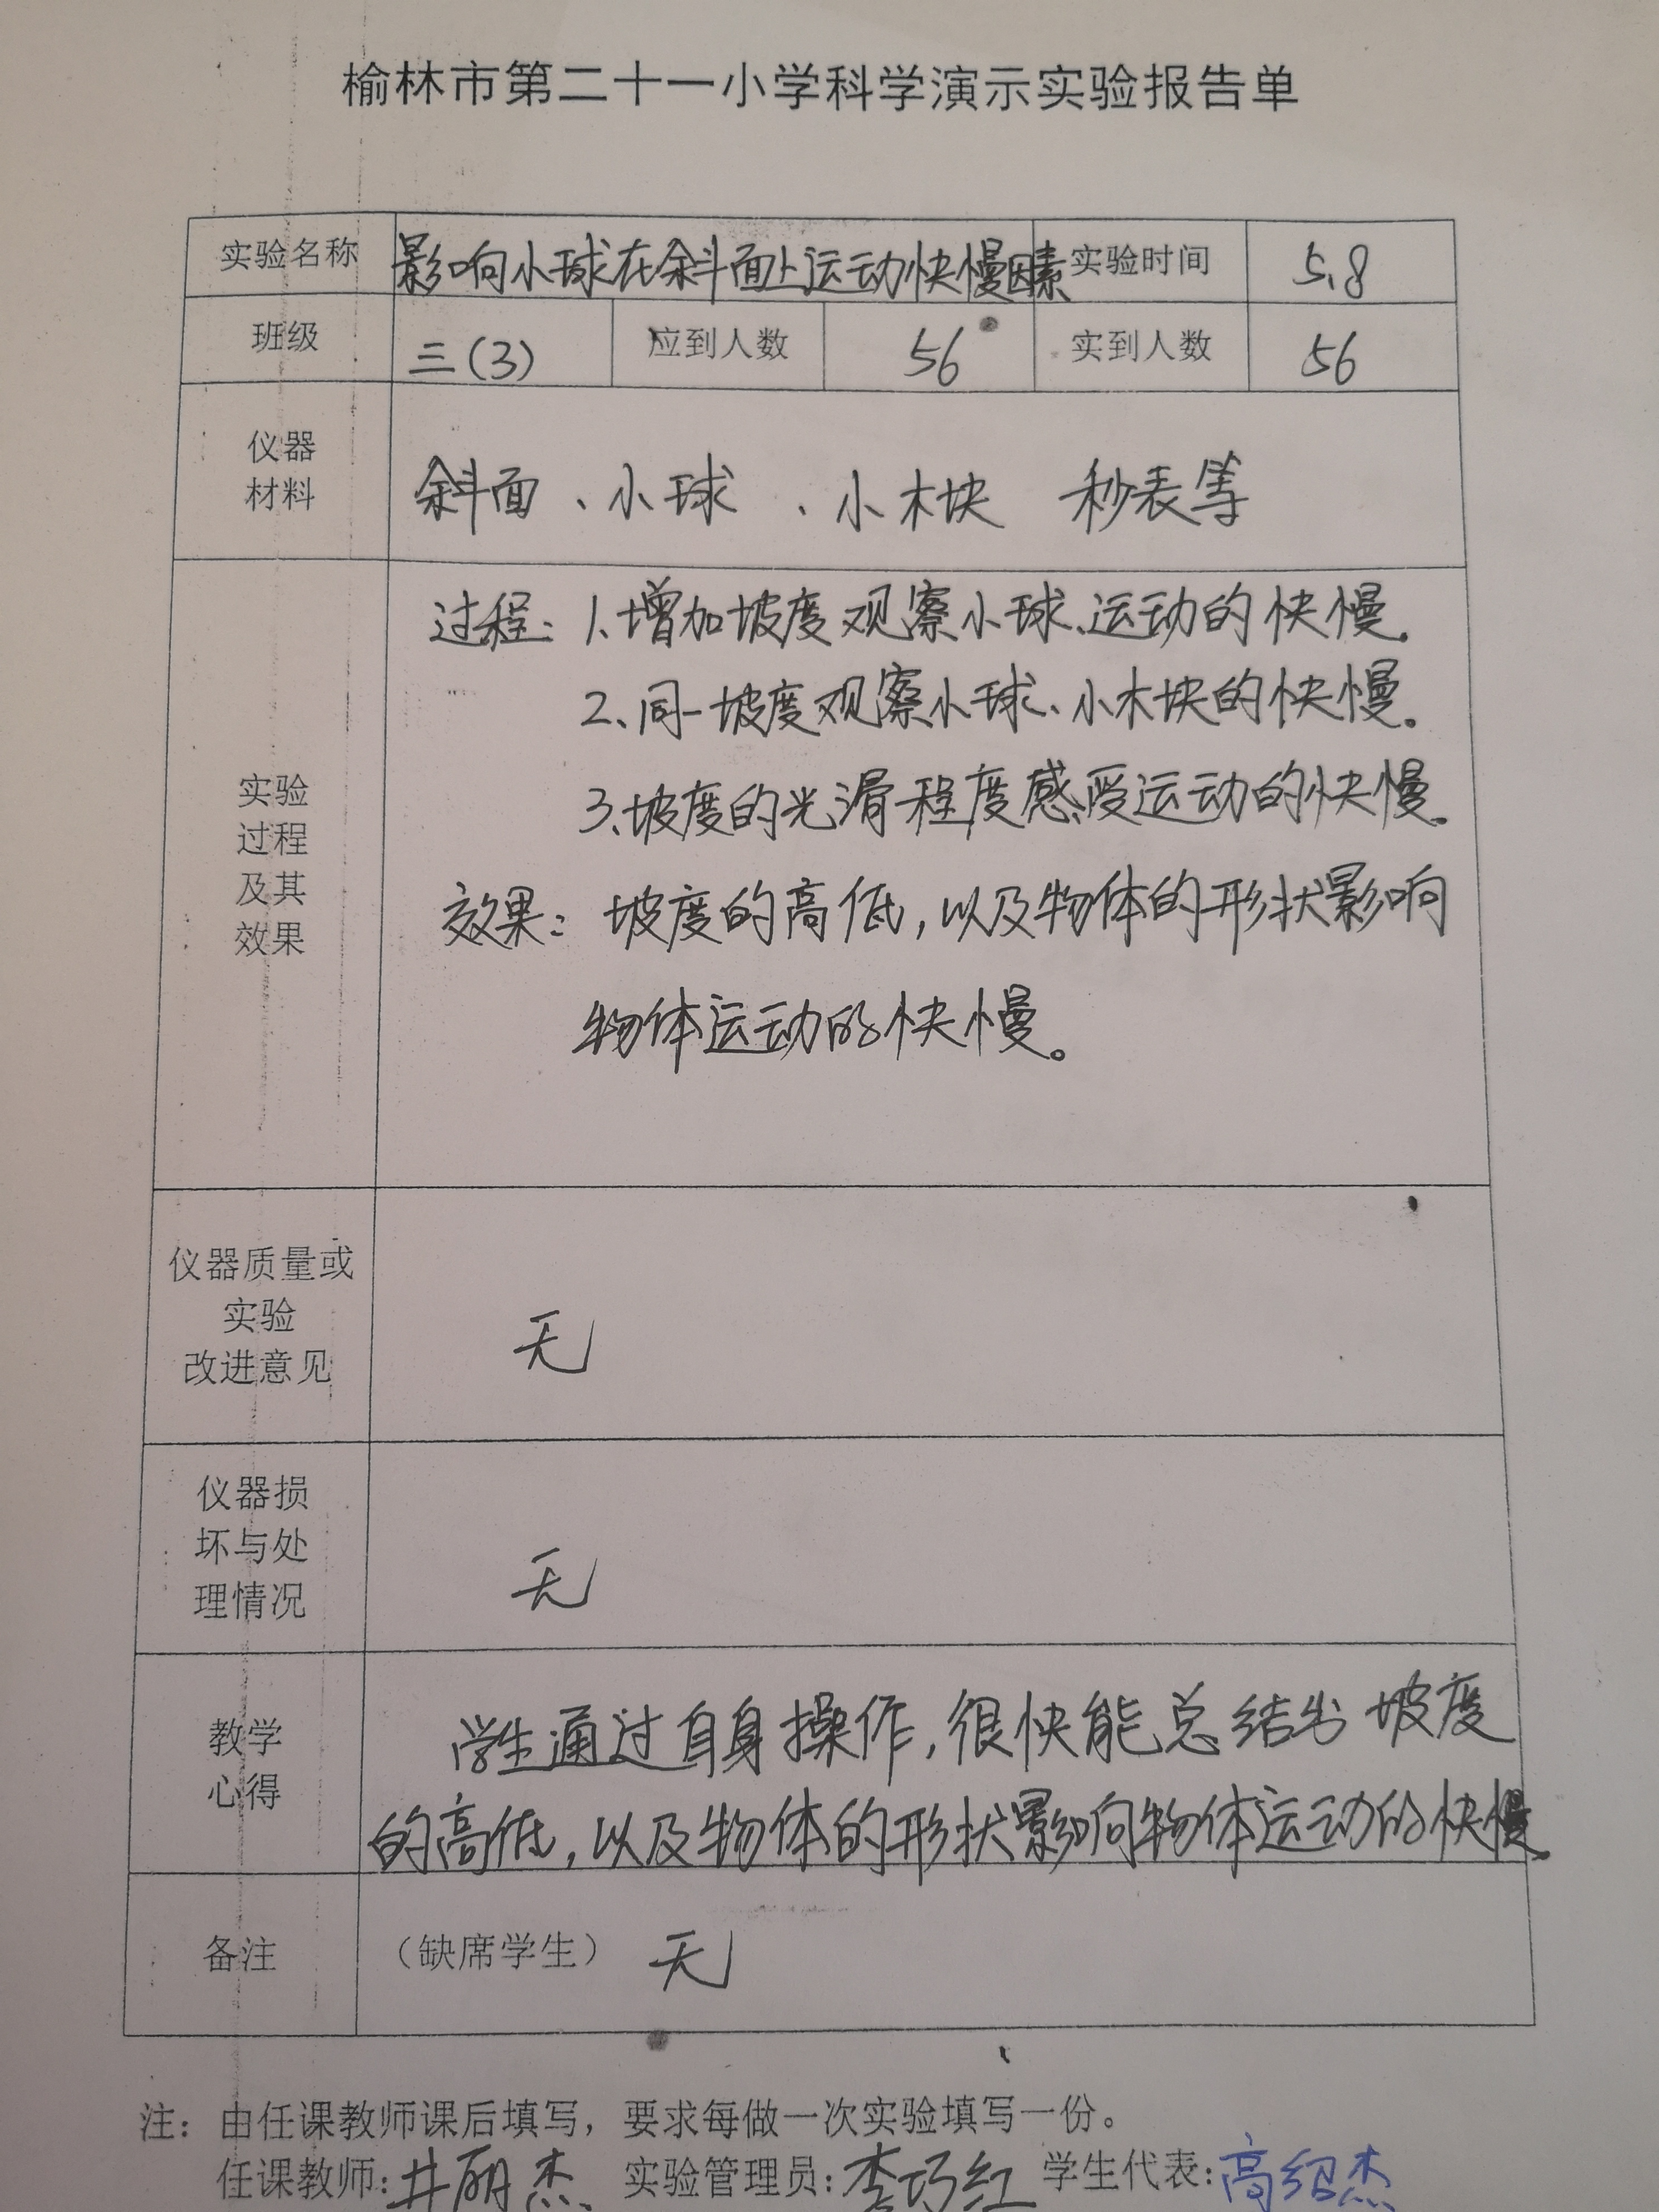 榆林市第二十一小学科学演示实验报告单
实验名称 影响小球在斜面上运动快慢因素 实验时间 5.8
班级 三(3) 应到人数 56 实到人数 56
仪器
材料
斜面、小球、小木块 秒表等
实验
过程
及其
效果
过程:1、增加坡度观察小球运动的快慢。
2、同一坡度观察小球、小木块的快慢。
3、坡度的光滑程度感受运动的快慢。
效果:坡度的高低,以及物体的形状影响
物体运动的快慢。
仪器质量或
实验
改进意见
无
仪器损
坏与处
理情况
无
教学
心得
学生通过自身操作,很快能总结出坡度
的高低,以及物体的形状影响物体运动的快慢。
备注 (缺席学生) 无
注:由任课教师课后填写,要求每做一次实验填写一份。
任课教师:井丽杰 实验管理员:李巧红 学生代表:高绍杰